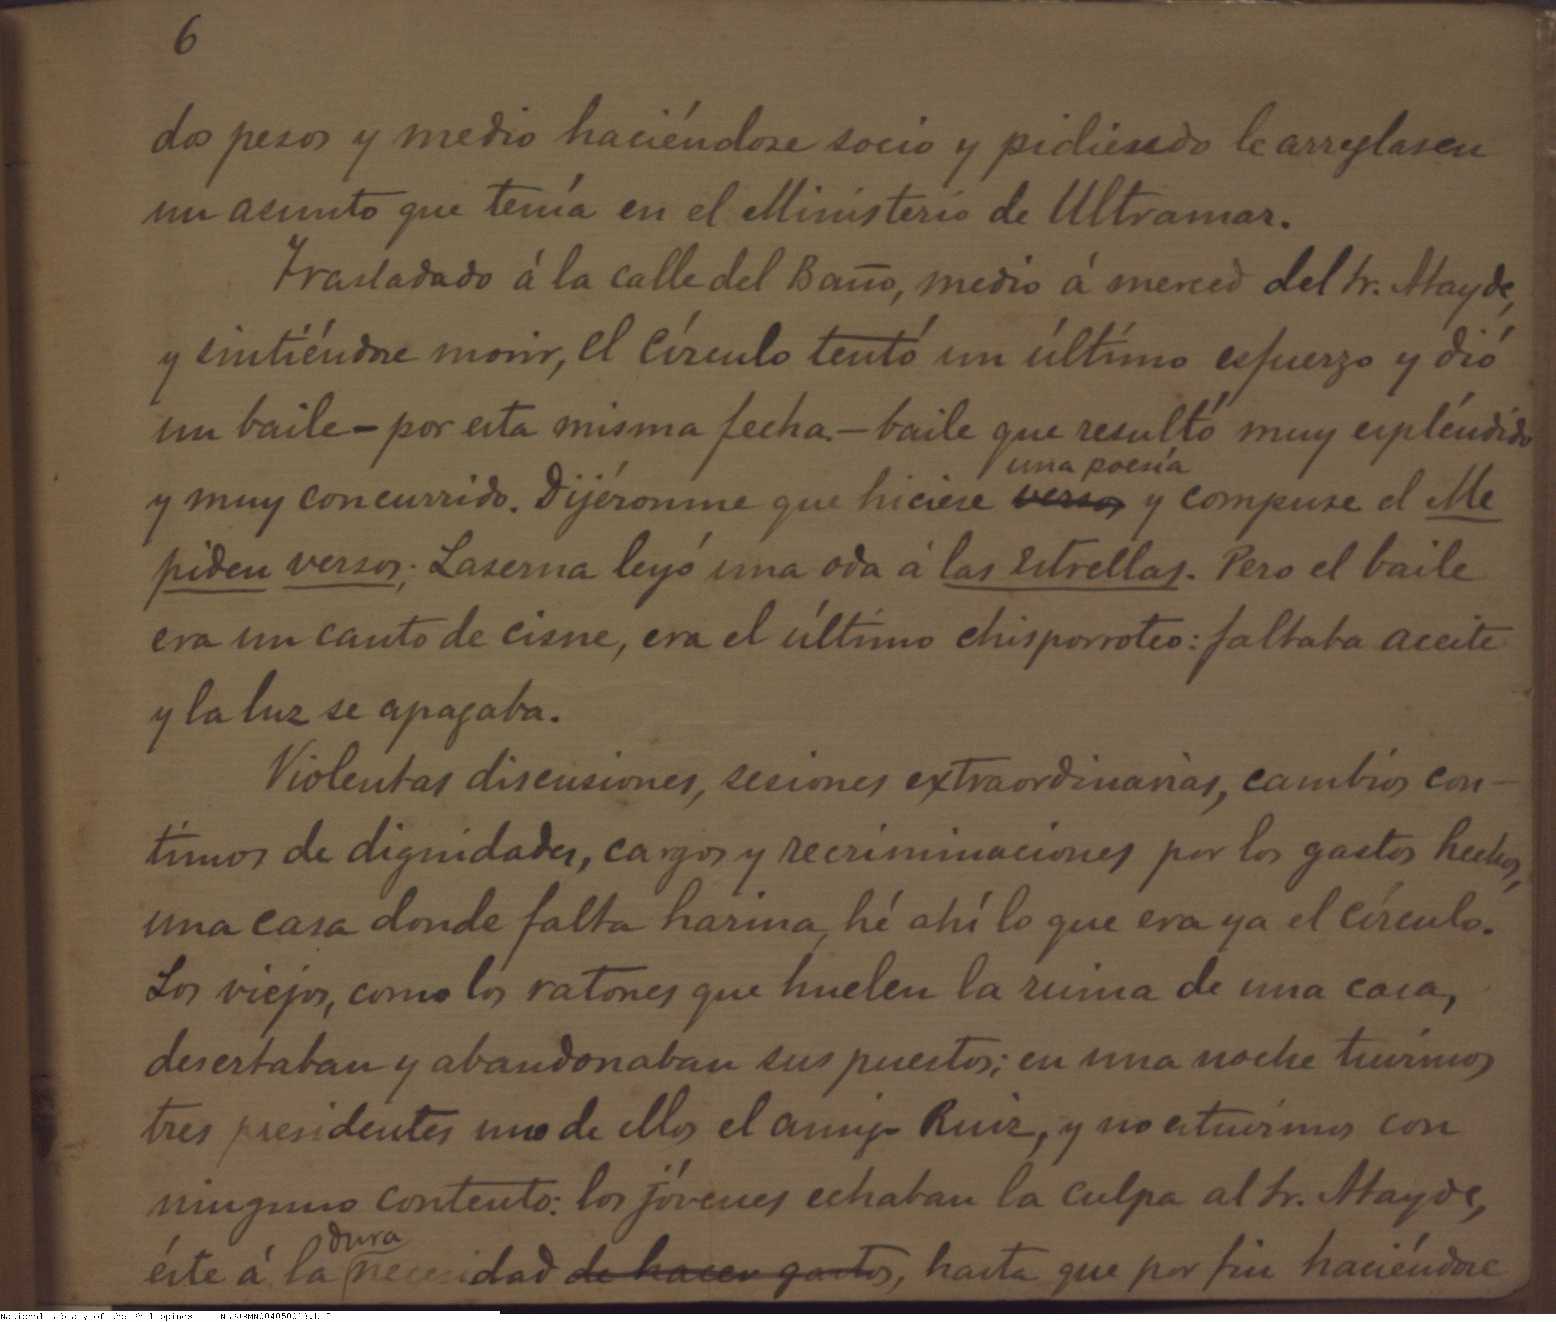 6
dos pesos y medio haciéndose socio y pidiendo le arreglasen
un asunto que tenía en el Ministerio de Ultramar.
Trasladado á la calle del Baño, medio á merced del Sr. Atayde,
y sintiéndose morir, el Círculo tentó un último esfuerzo y dió
un baile - por esta misma fecha. - baile que resultó muy espléndido
una poesía
y muy concurrido. Dijéronme que hiciese versos y compuse el Me
piden versos; Laserna leyó una oda á las Estrellas. Pero el baile
era un canto de cisne, era el último chisporroteo: faltaba aceite
y la luz se apagaba.
Violentas discusiones, sesiones extraordinarias, cambios con-
tínuos de dignidades, cargos y recriminaciones por los gastos hechos,
una casa donde falta harina, hé ahí lo que era ya el círculo.
Los viejos, como los ratones que huelen la ruina de una casa,
desertaban y abandonaban sus puestos; en una noche tuvimos
tres presidentes uno de ellos el amigo Ruiz, y no estuvimos con
ninguno contento: los jóvenes echaban la culpa al Sr. Atayde,
dura
éste á la necesidad de hacer gastos, hasta que por fin haciéndose
National Library of the Philippines